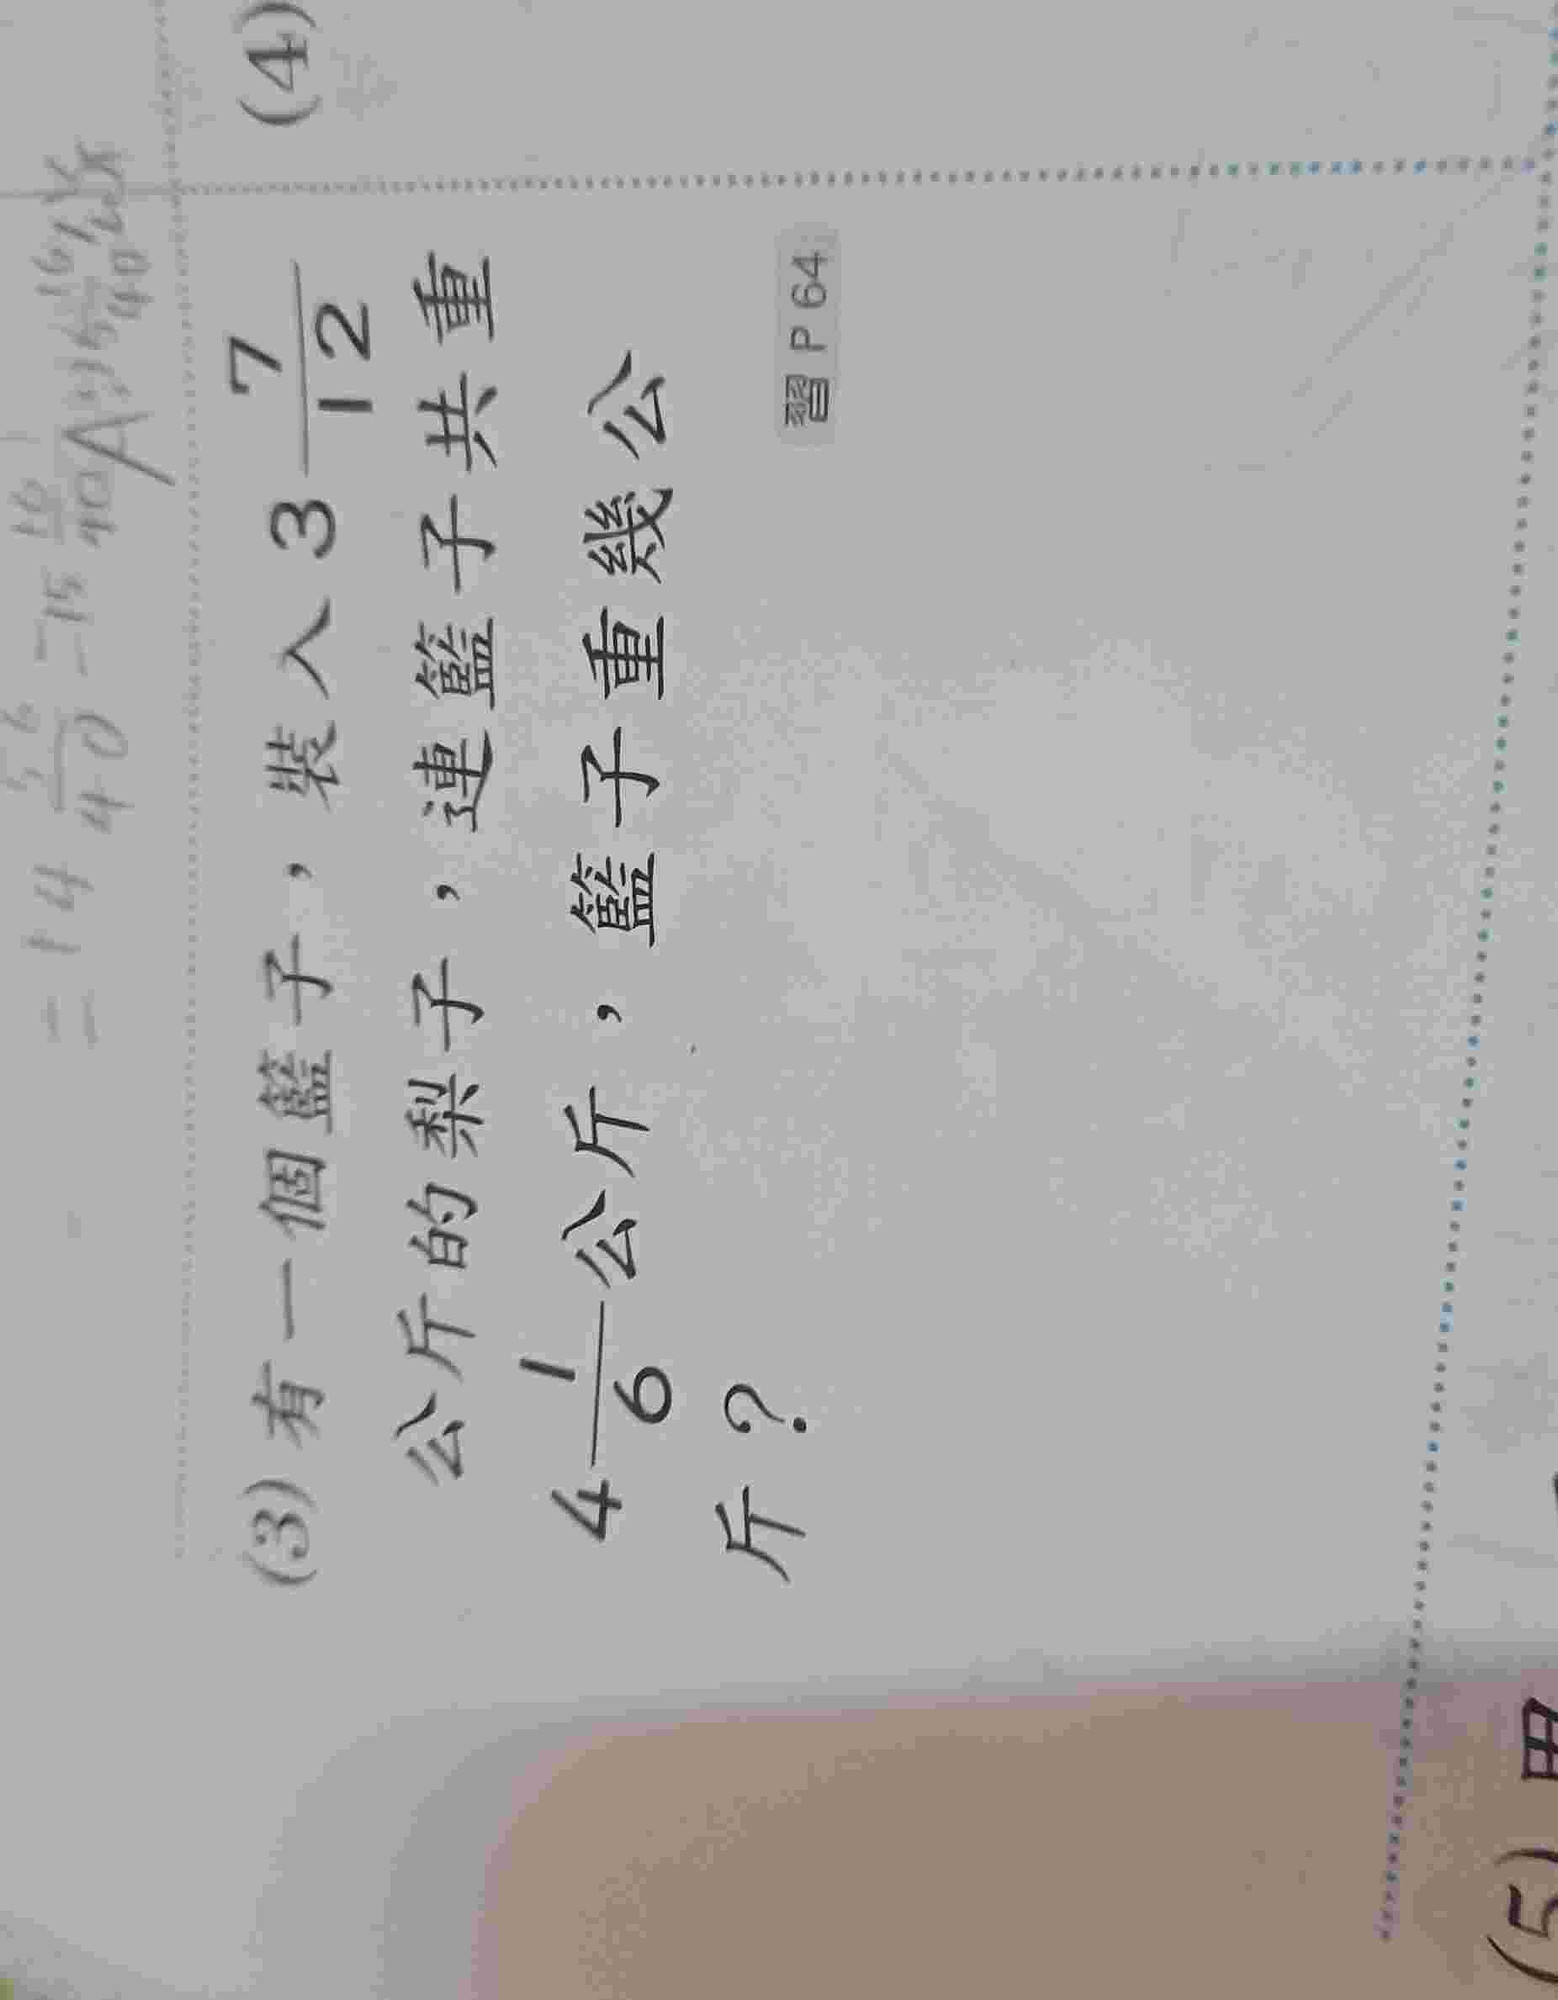 = 14 56/40 = 15 16/40
(3) 有一個籃子，裝入 3 7/12
公斤的梨子，連籃子共重
4 1/6 公斤，籃子重幾公
斤？
習 P 64
(4)
(5) 用